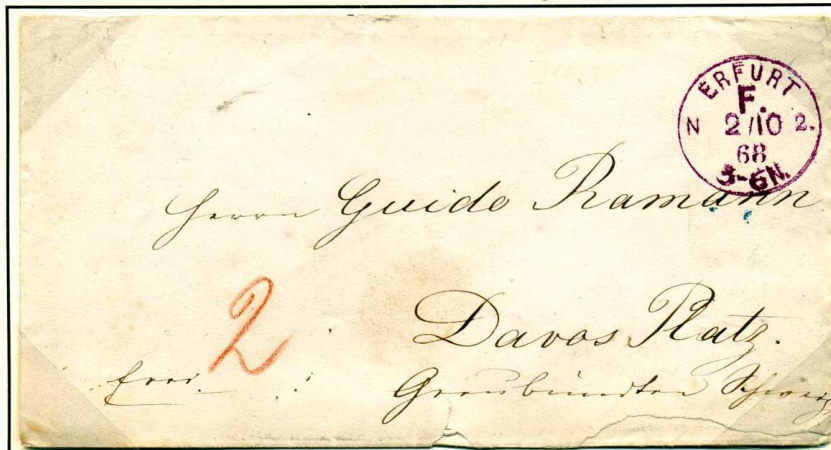 ERFURT
F.
N 2/10 2.
68
5-6N.
Herrn Guido Ramann
2
Davos Platz.
frei.
Graubündten Schweiz